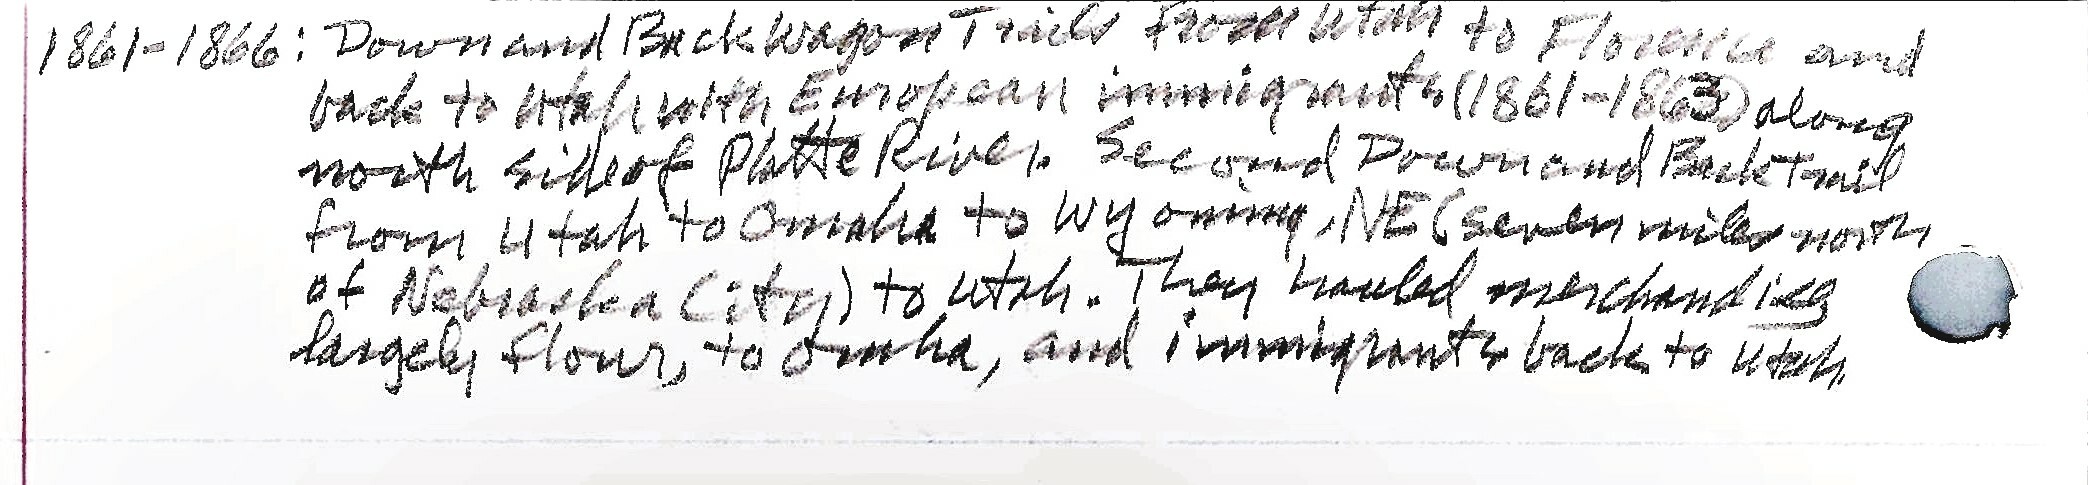 1861-1866: Down and Back Wagon Trails from Utah to Florence and
back to Utah with European immigrants (1861-1863) along
north side of Platte River. Second Down and Back trail
from Utah to Omaha to Wyoming, NE (seven miles north
of Nebraska City) to Utah. They hauled merchandise
largely flour, to Omaha, and immigrants back to Utah.